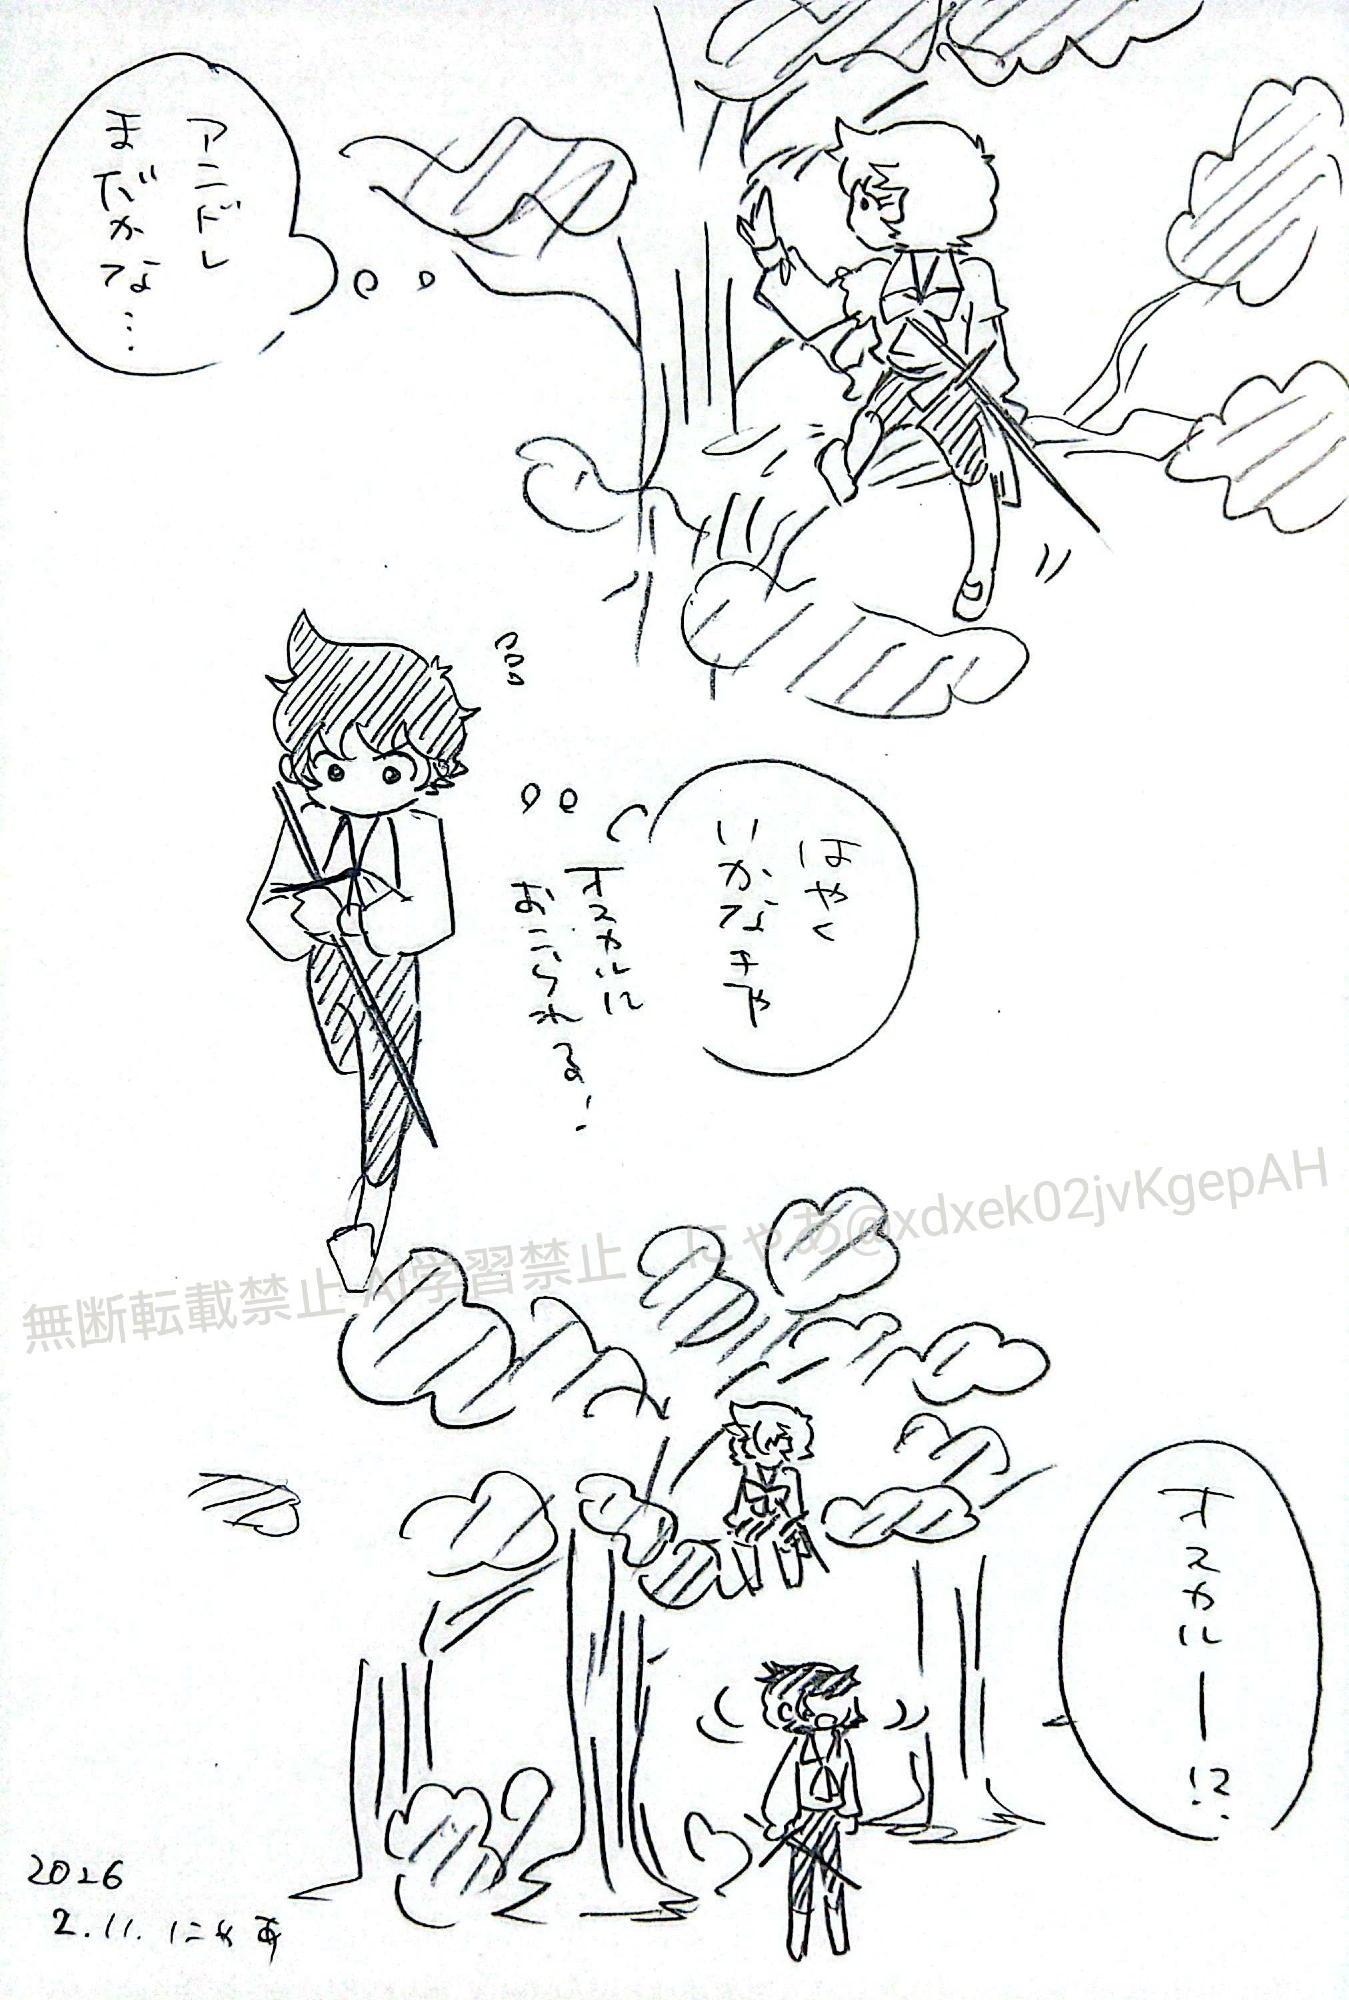 アンドレ
まだかな…
はやく
いかなきゃ
オスカルに
おこられる!
無断転載禁止 AI学習禁止 にゃあ@xdxek02jvKgepAH
オスカルー!?
2026
2.11. にゃあ